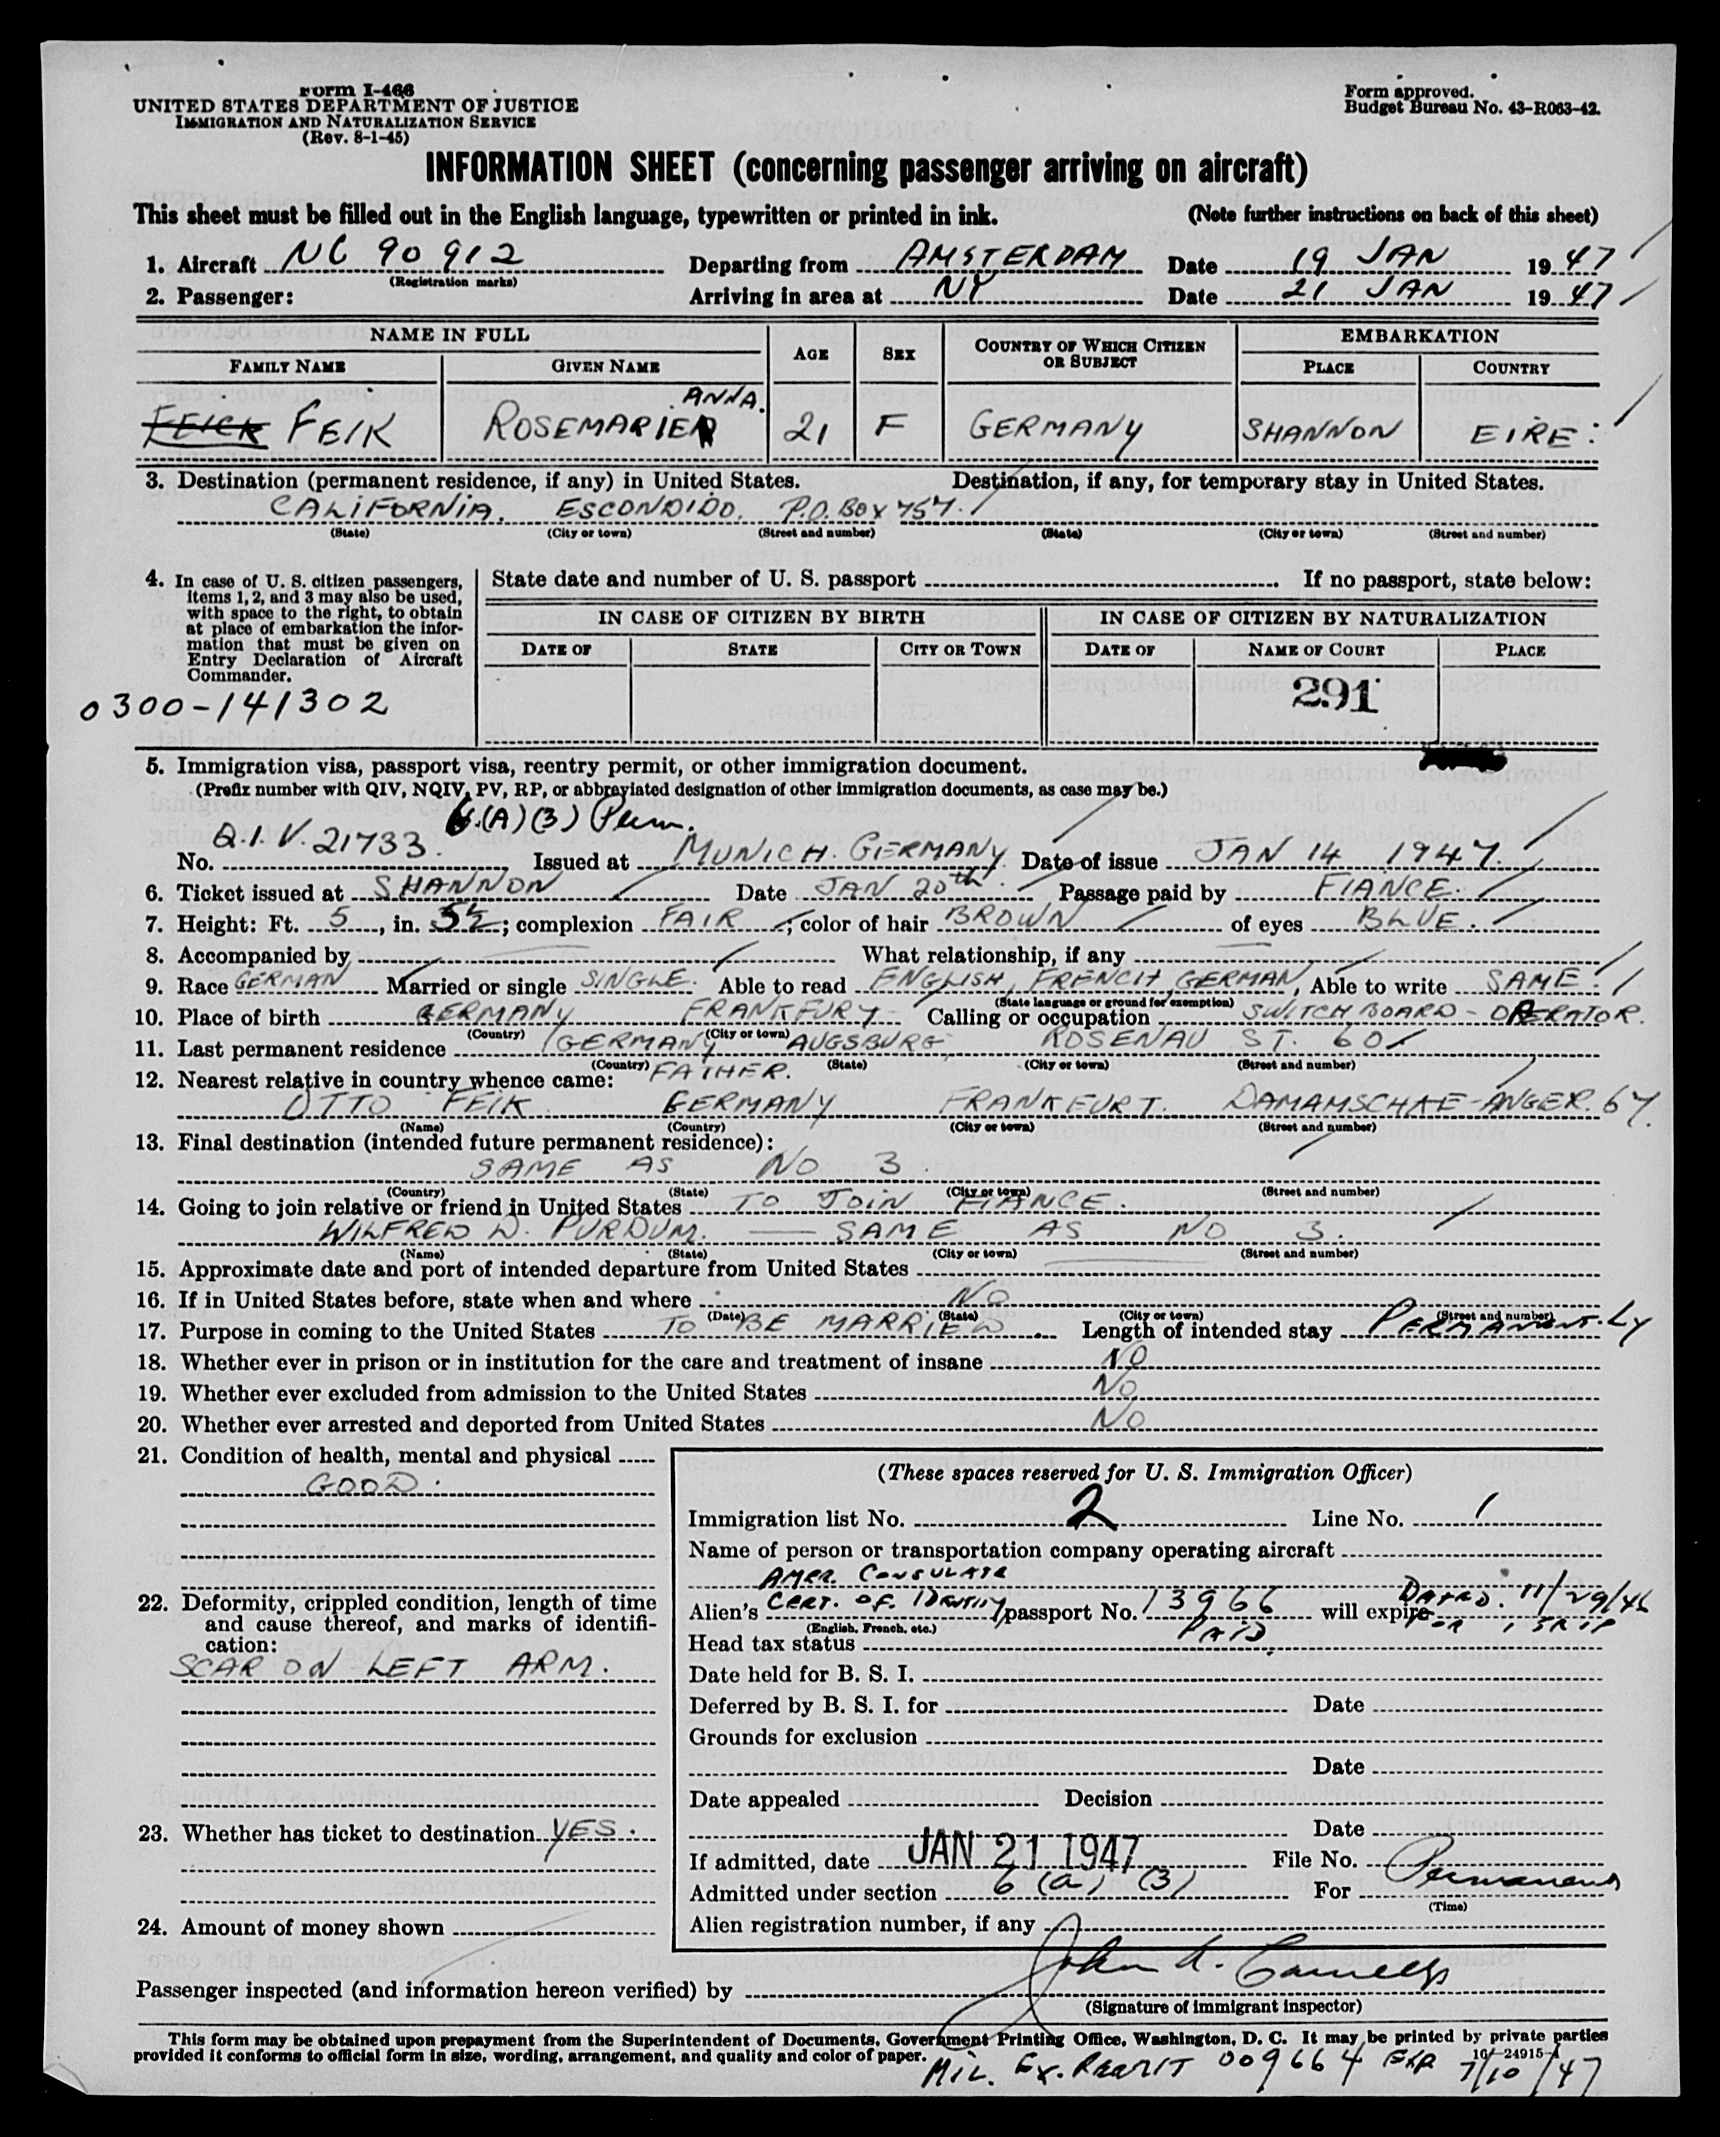 Form I-466
UNITED STATES DEPARTMENT OF JUSTICE
IMMIGRATION AND NATURALIZATION SERVICE
(Rev. 8-1-45)
Form approved.
Budget Bureau No. 43-R063-42.
INFORMATION SHEET (concerning passenger arriving on aircraft)
This sheet must be filled out in the English language, typewritten or printed in ink. (Note further instructions on back of this sheet)
1. Aircraft NC 90912 Departing from AMSTERDAM Date 19 JAN 1947
(Registration marks)
2. Passenger: Arriving in area at NY Date 21 JAN 1947
NAME IN FULL AGE SEX COUNTRY OF WHICH CITIZEN OR SUBJECT EMBARKATION
FAMILY NAME GIVEN NAME PLACE COUNTRY
ANNA.
FEICK FEIK ROSEMARIE 21 F GERMANY SHANNON EIRE.
3. Destination (permanent residence, if any) in United States. Destination, if any, for temporary stay in United States.
CALIFORNIA. ESCONDIDO. P.O. BOX 757.
(State) (City or town) (Street and number) (State) (City or town) (Street and number)
4. In case of U. S. citizen passengers, items 1, 2, and 3 may also be used, with space to the right, to obtain at place of embarkation the information that must be given on Entry Declaration of Aircraft Commander.
0300-141302
State date and number of U. S. passport If no passport, state below:
IN CASE OF CITIZEN BY BIRTH IN CASE OF CITIZEN BY NATURALIZATION
DATE OF STATE CITY OR TOWN DATE OF NAME OF COURT PLACE
291
5. Immigration visa, passport visa, reentry permit, or other immigration document.
(Prefix number with QIV, NQIV, PV, RP, or abbreviated designation of other immigration documents, as case may be.)
6.(A)(3) Perm.
No. Q.I.V. 21733. Issued at MUNICH. GERMANY Date of issue JAN 14 1947.
6. Ticket issued at SHANNON Date JAN 20th. Passage paid by FIANCE.
7. Height: Ft. 5, in. 5½; complexion FAIR, color of hair BROWN of eyes BLUE.
8. Accompanied by What relationship, if any
9. Race GERMAN Married or single SINGLE. Able to read ENGLISH, FRENCH, GERMAN, Able to write SAME.
(State language or ground for exemption)
10. Place of birth GERMANY FRANKFURT Calling or occupation SWITCHBOARD-OPERATOR.
(Country) (City or town)
11. Last permanent residence GERMANY AUGSBURG, ROSENAU ST. 60
(Country) (State) (City or town) (Street and number)
12. Nearest relative in country whence came: FATHER.
OTTO FEIK GERMANY FRANKFURT. DAMAMSCHKE-ANGER. 67.
(Name) (Country) (City or town) (Street and number)
13. Final destination (intended future permanent residence):
SAME AS NO 3.
(Country) (State) (City or town) (Street and number)
14. Going to join relative or friend in United States TO JOIN FIANCE.
WILFRED W. PURDUM. — SAME AS NO 3.
(Name) (State) (City or town) (Street and number)
15. Approximate date and port of intended departure from United States
16. If in United States before, state when and where NO
(Date) (State) (City or town) (Street and number)
17. Purpose in coming to the United States TO BE MARRIED Length of intended stay PERMAMENT-LY
18. Whether ever in prison or in institution for the care and treatment of insane NO
19. Whether ever excluded from admission to the United States NO
20. Whether ever arrested and deported from United States NO
21. Condition of health, mental and physical
GOOD.
22. Deformity, crippled condition, length of time and cause thereof, and marks of identification:
SCAR ON LEFT ARM.
23. Whether has ticket to destination YES.
24. Amount of money shown
(These spaces reserved for U. S. Immigration Officer)
Immigration list No. 2 Line No. 1
Name of person or transportation company operating aircraft
AMER. CONSULATE
Alien's CERT. OF. IDENTITY passport No. 13966 will expire DATED. 11/29/46
(English, French, etc.) FOR 1 TRIP
Head tax status PAID.
Date held for B. S. I.
Deferred by B. S. I. for Date
Grounds for exclusion
Date
Date appealed Decision
Date
If admitted, date JAN 21 1947 File No.
Admitted under section 6 (a) (3) For Permanent
(Time)
Alien registration number, if any
Passenger inspected (and information hereon verified) by John
(Signature of immigrant inspector)
This form may be obtained upon prepayment from the Superintendent of Documents, Government Printing Office, Washington, D. C. It may be printed by private parties
provided it conforms to official form in size, wording, arrangement, and quality and color of paper. 16—24915-1
MIL. EX. PERMIT 009664 EXP 7/10/47